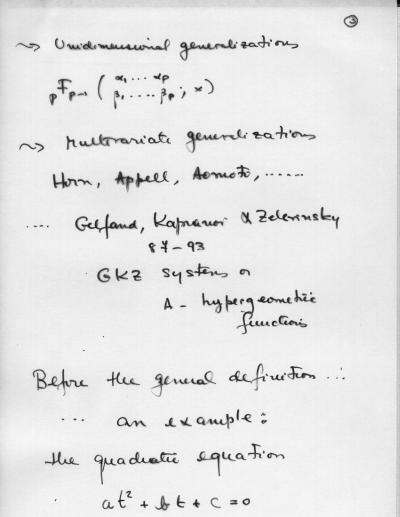 ③
~> Unidimensional generalizations
pFp-1 ( α1 ... αp
β1, .... βp ; x )
~> Multivariate generalizations
Horn, Appell, Aomoto, ......
.... Gelfand, Kapranov & Zelevinsky
87-93
GKZ systems or
A - hypergeometric
functions
Before the general definition ...
... an example:
the quadratic equation
at² + bt + c = 0